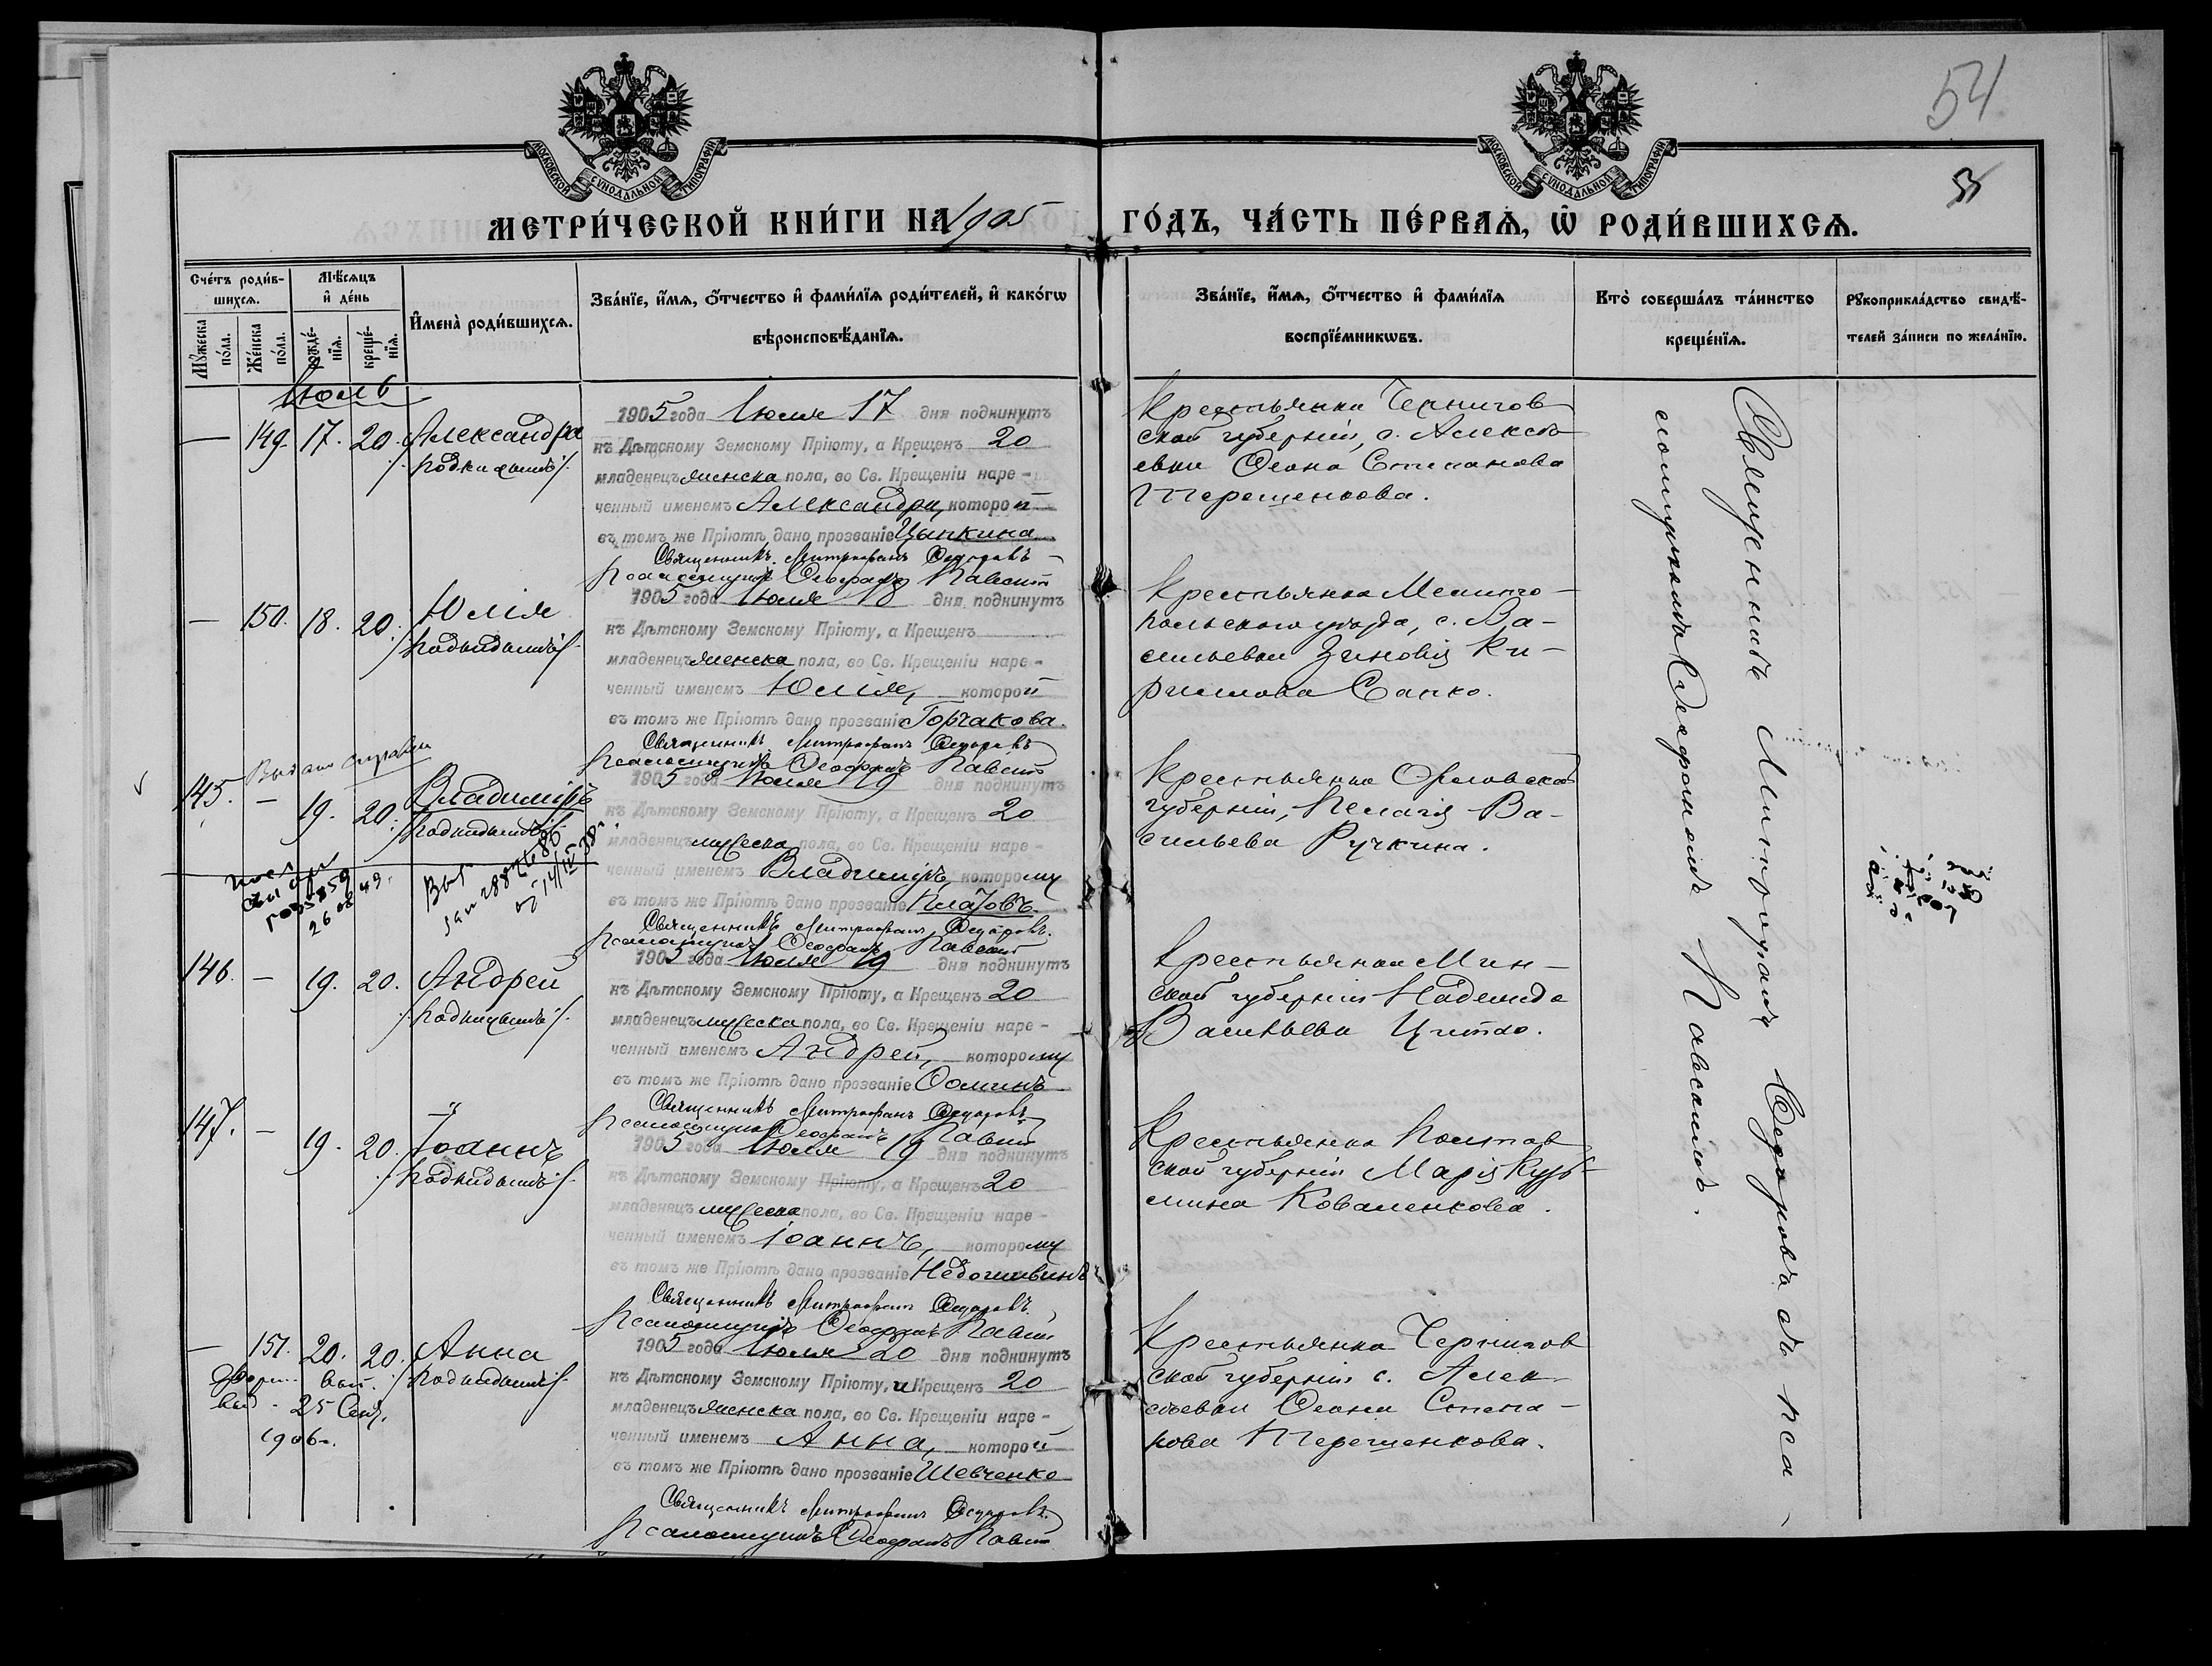 54
55
МОСКОВСКОЙ СѴНОДАЛЬНОЙ ТИПОГРАФІИ
МОСКОВСКОЙ СѴНОДАЛЬНОЙ ТИПОГРАФІИ
МЕТРИ́ЧЕСКОЙ КНИ́ГИ НА 1905 ГО́ДЪ, ЧА́СТЬ ПЕ́РВАѦ, Ѡ҆ РОДИ́ВШИХСѦ.
Сче́тъ роди́в-
шихсѧ.
Мꙋ́жеска
по́ла.
Же́нска
по́ла.
Мѣ́сѧцъ
и҆ де́нь
рожде́-
нїѧ.
креще́-
нїѧ.
И҆мена̀ роди́вшихсѧ.
Зва́нїе, и҆́мѧ, ѻ҆́тчество и҆ фами́лїѧ роди́телей, и҆ како́гѡ
вѣроисповѣ́данїѧ.
Зва́нїе, и҆́мѧ, ѻ҆́тчество и҆ фами́лїѧ
воспрїе́мникѡвъ.
Кто̀ соверша́лъ та́инство
креще́нїѧ.
Рꙋкоприкла́дство свидѣ́-
телей за́писи по жела́нїю.
Іюль
— 149. 17. 20. Александра
/. подкидышъ /.
1905 года Іюля 17 дня подкинутъ
къ Дѣтскому Земскому Пріюту, а Крещенъ 20
младенецъ женска пола, во Св. Крещеніи наре-
ченный именемъ Александра, которой
въ томъ же Пріютѣ дано прозваніе Цыпкина
Священникъ Митрофанъ Ѳедоровъ
Псаломщикъ Ѳеофанъ Павскій
Крестьянка Чернигов
ской губерніи, с. Алексѣ
евки Ѳеона Степанова
Терещенкова.
— 150. 18. 20. Юлія
/. подкидышъ /.
1905 года Іюля 18 дня подкинутъ
къ Дѣтскому Земскому Пріюту, а Крещенъ
младенецъ женска пола, во Св. Крещеніи наре-
ченный именемъ Юлія, которой
въ томъ же Пріютѣ дано прозваніе Горчакова.
Священникъ Митрофанъ Ѳедоровъ
Псаломщикъ Ѳеофанъ Павскій
Крестьянка Мелито-
польскаго уѣзда, с. Ва-
сильевки Зиновія Ки-
риллова Сапко.
145. — 19. 20. Владиміръ
/. подкидышъ /.
1905 года Іюля 19 дня подкинутъ
къ Дѣтскому Земскому Пріюту, а Крещенъ 20
младенецъ мужеска пола, во Св. Крещеніи наре-
ченный именемъ Владиміръ, которому
въ томъ же Пріютѣ дано прозваніе Платовъ.
Священникъ Митрофанъ Ѳедоровъ.
Псаломщикъ Ѳеофанъ Павскій
Крестьянка Орловской
губерніи, Пелагія Ва-
сильева Ручкина.
146. — 19. 20. Андрей
/. подкидышъ /.
1905 года Іюля 19 дня подкинутъ
къ Дѣтскому Земскому Пріюту, а Крещенъ 20
младенецъ мужеска пола, во Св. Крещеніи наре-
ченный именемъ Андрей, которому
въ томъ же Пріютѣ дано прозваніе Ѳоминъ
Священникъ Митрофанъ Ѳедоровъ
Псаломщикъ Ѳеофанъ Павскій
Крестьянка Мин-
ской губерніи Надежда
Васильева
147. — 19. 20. Іоаннъ
/. подкидышъ /.
1905 года Іюля 19 дня подкинутъ
къ Дѣтскому Земскому Пріюту, а Крещенъ 20
младенецъ мужеска пола, во Св. Крещеніи наре-
ченный именемъ Іоаннъ, которому
въ томъ же Пріютѣ дано прозваніе Недошивинъ
Священникъ Митрофанъ Ѳедоровъ.
Псаломщикъ Ѳеофанъ Павскій
Крестьянка Полтав
ской губерніи Марія Кузь-
мина Коваленкова.
— 151. 20. 20. Анна
/. подкидышъ /.
25 Сент.
1906 г.
1905 года Іюля 20 дня подкинутъ
къ Дѣтскому Земскому Пріюту, и Крещенъ 20
младенецъ женска пола, во Св. Крещеніи наре-
ченный именемъ Анна, которой
въ томъ же Пріютѣ дано прозваніе Шевченко
Священникъ Митрофанъ Ѳедоровъ.
Псаломщикъ Ѳеофанъ Павскій
Крестьянка Чернигов
ской губерніи с. Алек-
сѣевки Ѳеона Степа-
нова Терещенкова.
Священникъ Митрофанъ Ѳедоровъ съ пса-
ломщикомъ Ѳеофаномъ Павскимъ.